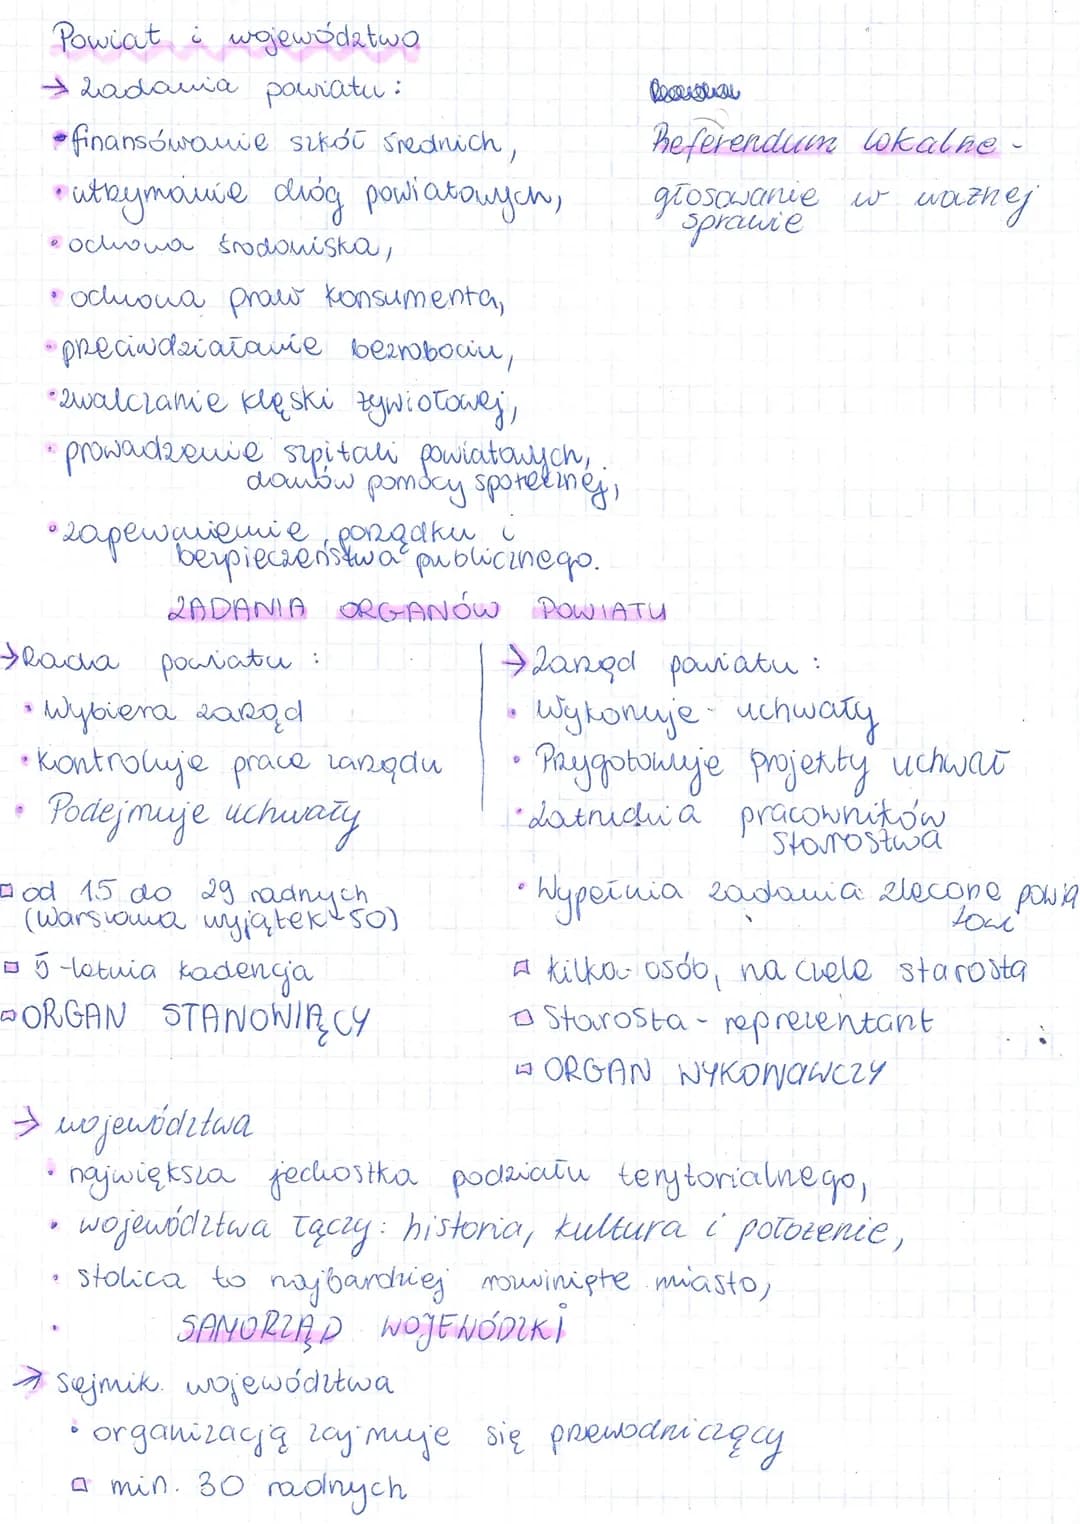 Powiat i województwo
→ zadania powiatu:
• finansowanie szkół średnich,
• utrzymanie dróg powiatowych,
• ochrona środowiska,
• ochrona praw konsumenta,
• przeciwdziałanie bezrobociu,
• zwalczanie klęski żywiołowej,
• prowadzenie szpitali powiatowych,
domów pomocy społecznej,
• zapewnienie porządku i
bezpieczeństwa publicznego.
Referendum lokalne -
głosowanie w ważnej
sprawie
ZADANIA ORGANÓW POWIATU
→ Rada powiatu:
• Wybiera zarząd
• Kontroluje prace zarządu
• Podejmuje uchwały
□ od 15 do 29 radnych
(Warszawa wyjątek - 50)
□ 5-letnia kadencja
□ ORGAN STANOWIĄCY
→ Zarząd powiatu:
• Wykonuje uchwały
• Przygotowuje projekty uchwał
• Zatrudnia pracowników
starostwa
• Wypełnia zadania zlecone powia
towi
□ kilka osób, na czele starosta
□ Starosta - reprezentant
□ ORGAN WYKONAWCZY
→ województwa
• największa jednostka podziału terytorialnego,
• województwa łączy: historia, kultura i położenie,
• stolica to najbardziej rozwinięte miasto,
•
SAMORZĄD WOJEWÓDZKI
→ Sejmik województwa
• organizacją zajmuje się przewodniczący
□ min. 30 radnych